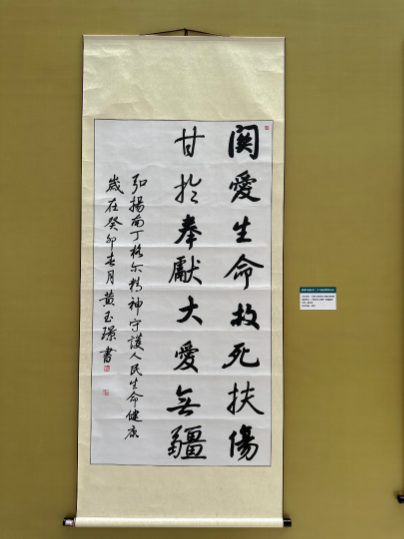 關愛生命救死扶傷
甘於奉獻大愛無疆
弘揚南丁格尔精神守護人民生命健康
歲在癸卯春月黄玉璟書